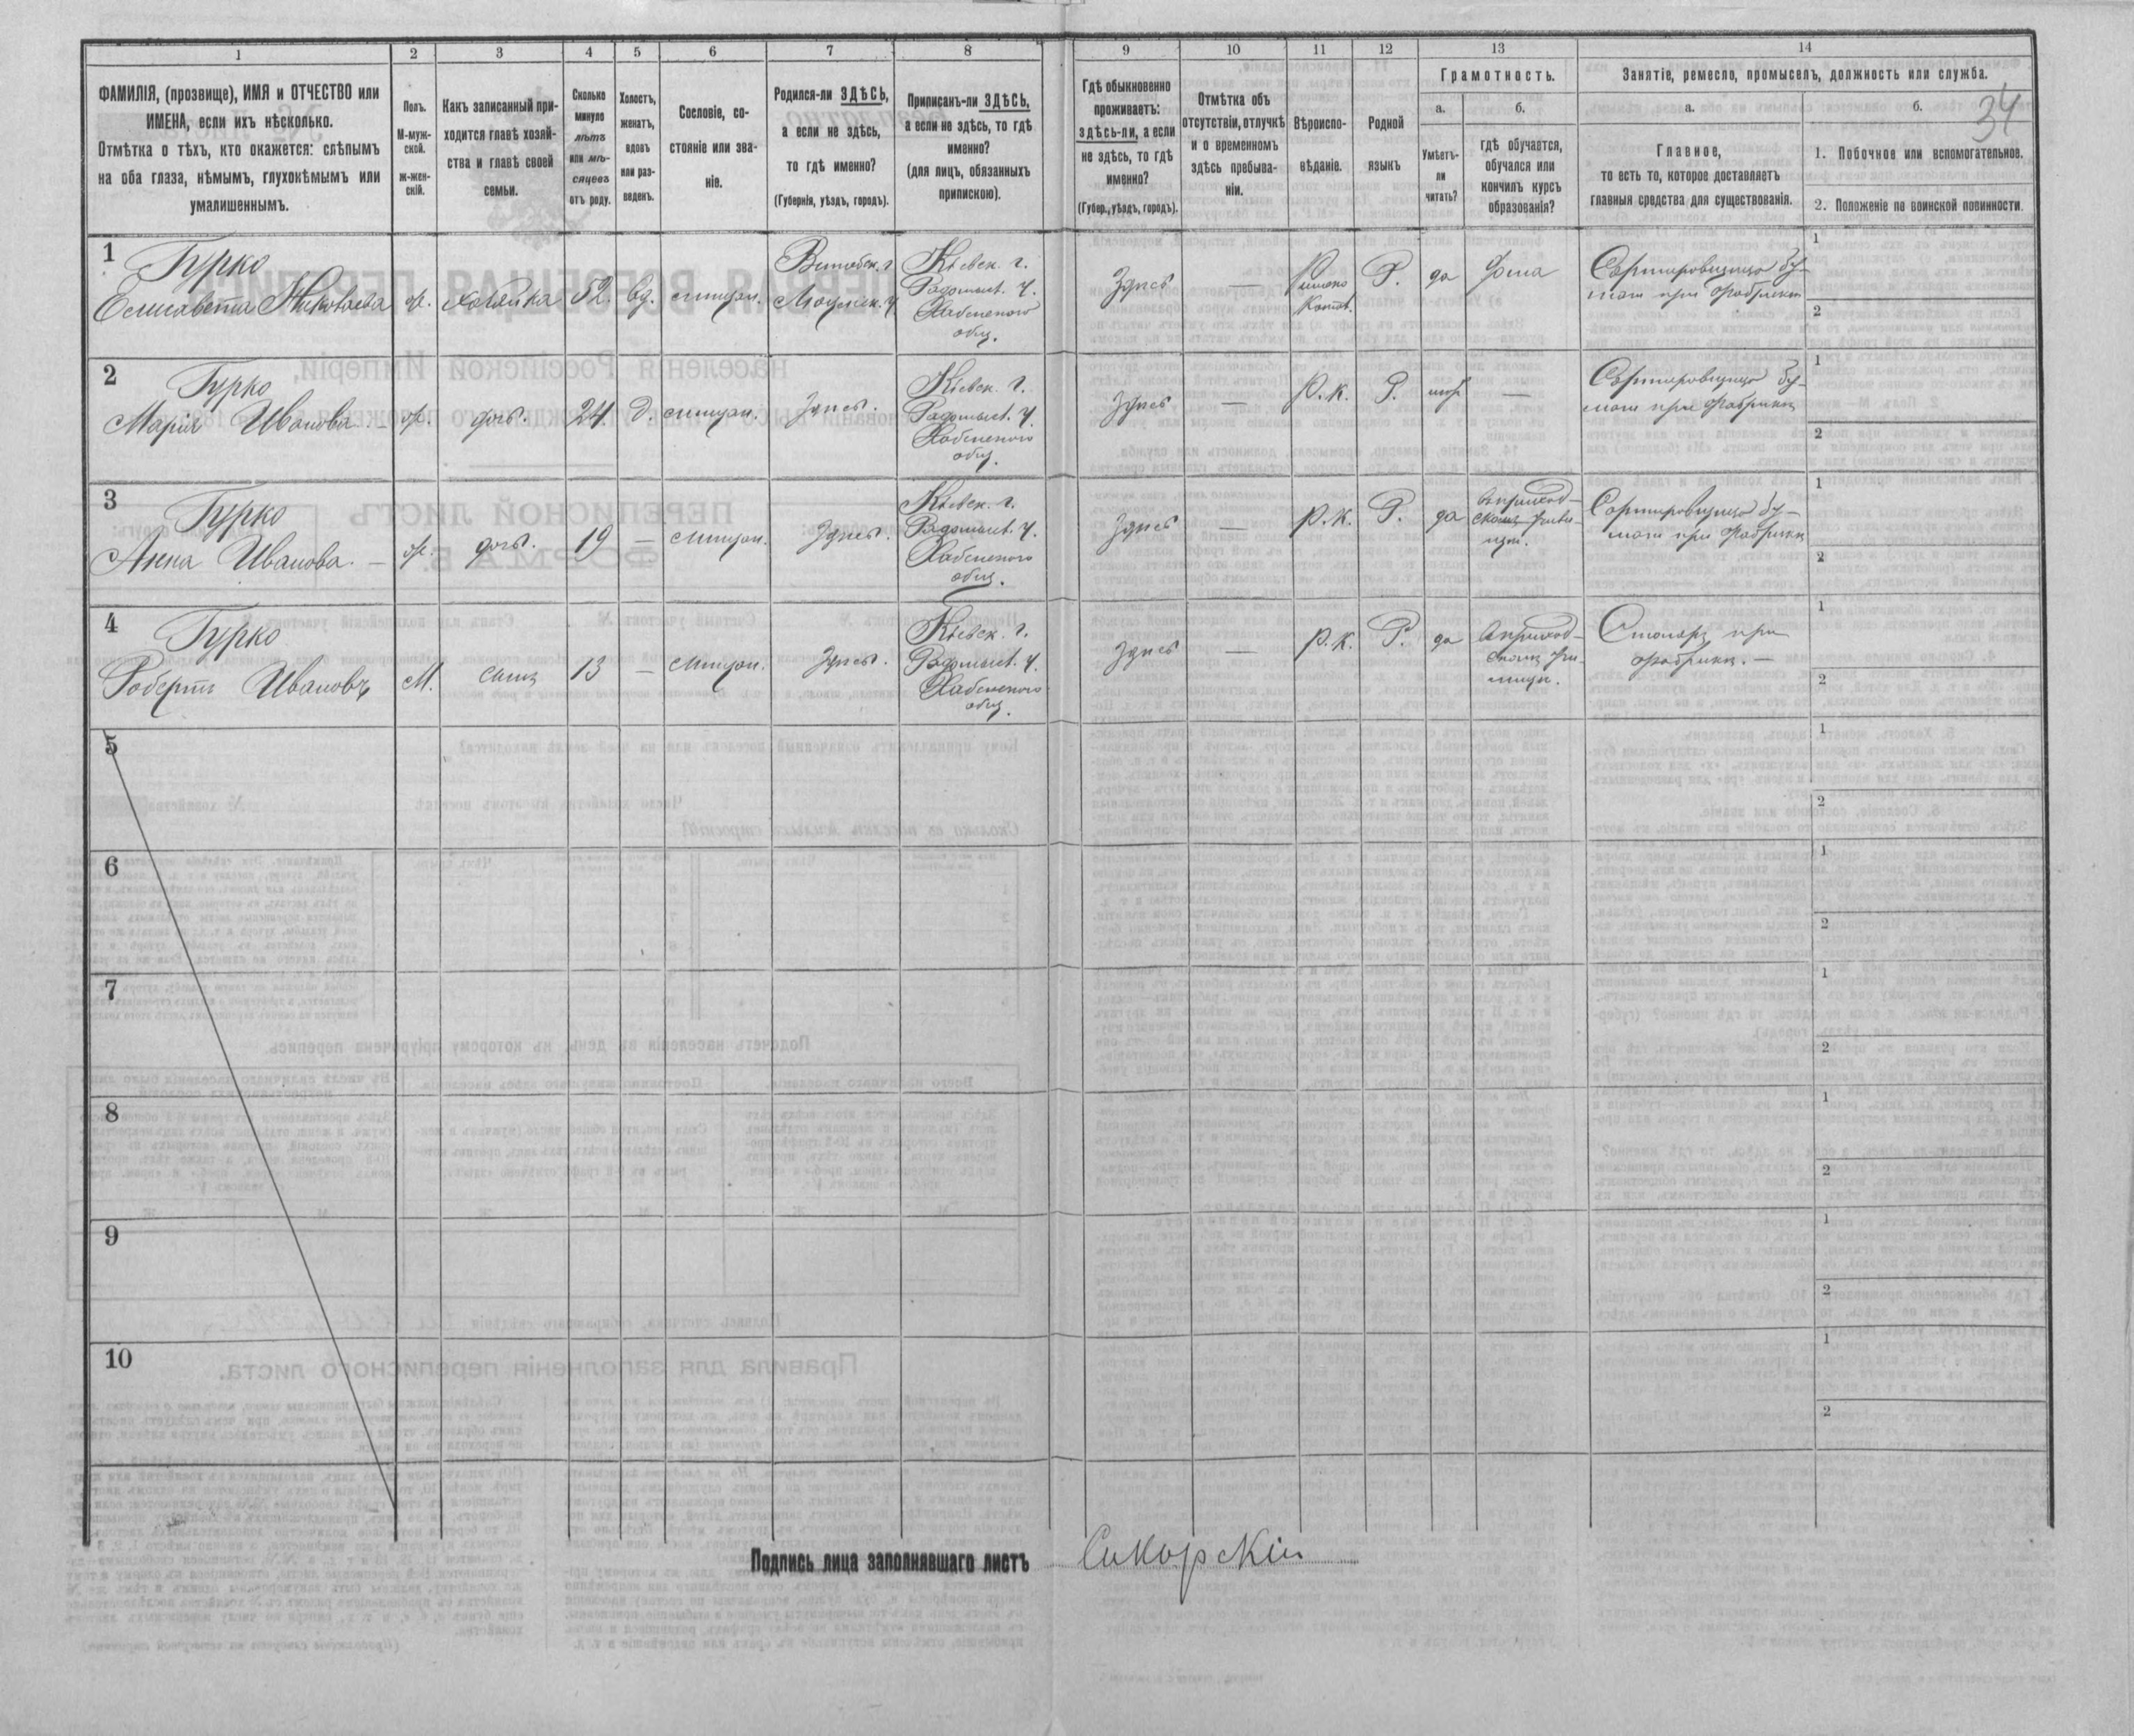 34
1 2 3 4 5 6 7 8 9 10 11 12 13 14
ФАМИЛІЯ, (прозвище), ИМЯ и ОТЧЕСТВО или
ИМЕНА, если ихъ нѣсколько.
Отмѣтка о тѣхъ, кто окажется: слѣпымъ
на оба глаза, нѣмымъ, глухонѣмымъ или
умалишеннымъ.
Полъ.
М-муж-
ской.
ж-жен-
скій.
Какъ записанный при-
ходится главѣ хозяй-
ства и главѣ своей
семьи.
Сколько
минуло
лѣтъ
или мѣ-
сяцевъ
отъ роду.
Холостъ,
женатъ,
вдовъ
или раз-
веденъ.
Сословіе, со-
стояніе или зва-
ніе.
Родился-ли ЗДѢСЬ,
а если не здѣсь,
то гдѣ именно?
(Губернія, уѣздъ, городъ).
Приписанъ-ли ЗДѢСЬ,
а если не здѣсь, то гдѣ
именно?
(для лицъ, обязанныхъ
припискою).
Гдѣ обыкновенно
проживаетъ:
здѣсь-ли, а если
не здѣсь, то гдѣ
именно?
(Губер., уѣздъ, городъ).
Отмѣтка объ
отсутствіи, отлучкѣ
и о временномъ
здѣсь пребыва-
ніи.
Вѣроиспо-
вѣданіе.
Родной
языкъ
Грамотность.
а.
Умѣетъ-
ли
читать?
б.
гдѣ обучается,
обучался или
кончилъ курсъ
образованія?
Занятіе, ремесло, промыселъ, должность или служба.
а.
Главное,
то есть то, которое доставляетъ
главныя средства для существованія.
б.
1. Побочное или вспомогательное.
2. Положеніе по воинской повинности.
1
Гурко
Елисавета Николаева
ж.
хозяйка
52.
вд.
мѣщан.
Витебск. г.
Кіевск. г.
Радомысл. у.
Хабенского
общ.
Здѣсь
—
Римско
Катол.
Р.
да
дома
Сортировщица бу-
маги при фабрикѣ
1
2
2
Гурко
Марія Иванова. —
ж.
дочь.
24
д.
мѣщан.
Здѣсь.
Кіевск. г.
Радомысл. у.
Хабенского
общ.
Здѣсь
—
Р.к.
Р.
нѣт
—
Сортировщица бу-
маги при фабрикѣ
1
2
3
Гурко
Анна Иванова. —
ж.
дочь.
19
—
мѣщан.
Здѣсь.
Кіевск. г.
Радомысл. у.
Хабенского
общ.
Здѣсь
—
Р.к.
Р.
да
въ приход-
скомъ учили-
щѣ.
Сортировщица бу-
маги при фабрикѣ
1
2
4
Гурко
Робертъ Ивановъ
М.
сынъ
13
—
мѣщан.
Здѣсь.
Кіевск. г.
Радомысл. у.
Хабенского
общ.
Здѣсь
—
Р.к.
Р.
да
въ приход-
скомъ учи-
лищѣ.
Столяръ при
фабрикѣ. —
1
2
5
1
2
6
1
2
7
1
2
8
1
2
9
1
2
10
1
2
Подпись лица заполнявшаго листъ Сикорскій